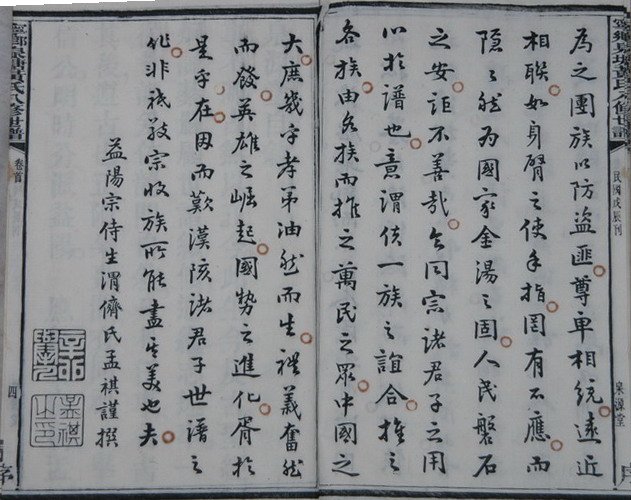 為之團族以防盜匪尊卑相統遠近
相聯如身臂之使手指罔有不應而
隱之然為國家金湯之固人民磐石
之安詎不善哉今同宗諸君子之用
心於譜也意謂使一族之誼合推之
各族由各族而推之萬民之眾中國之
大庶幾乎孝弟油然而生禮義奮然
而發英雄之崛起國勢之進化胥於
是乎在因而歎漢陔諸君子世譜之
作非祗敬宗收族所能盡其美也夫
益陽宗侍生渭儕氏孟祺謹撰
孟祺之印
寧鄉泉塘黃氏八修世譜
卷首
四
民國戊辰刊
泉源堂